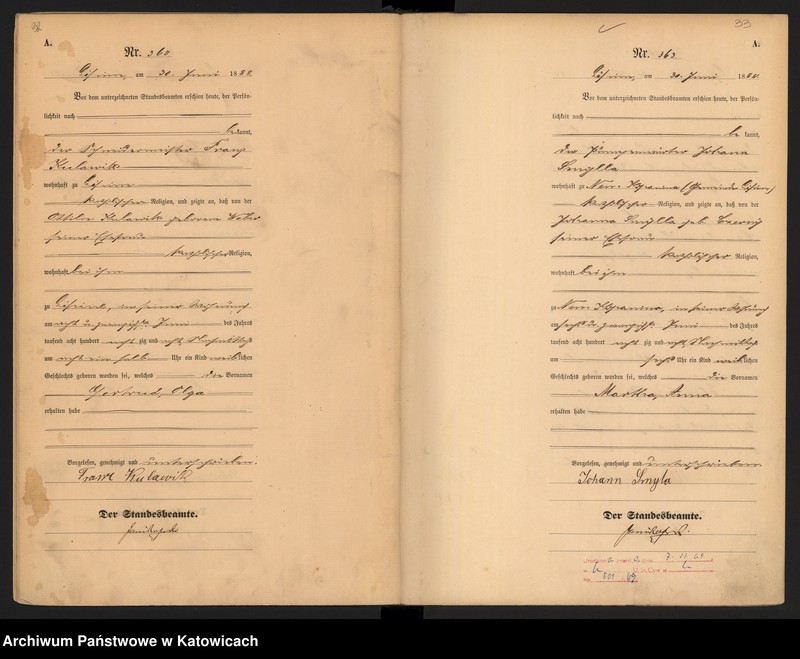 32
A.
Nr. 362
am 30. Juni 1888.
Vor dem unterzeichneten Standesbeamten erschien heute, der Persön-
lichkeit nach
be kannt,
der Schneidermeister Franz
Kulawik
wohnhaft zu
katholischer Religion, und zeigte an, daß von der
Ottilie Kulawik geborene
seiner Ehefrau
katholischer Religion,
wohnhaft bei ihm
zu in seiner Wohnung
am acht u. zwanzigsten Juni des Jahres
tausend acht hundert acht zig und acht
um acht ein halb Uhr ein Kind weib lichen
Geschlechts geboren worden sei, welches die Vornamen
Gertrud, Olga
erhalten habe
Vorgelesen, genehmigt und unterschrieben.
Franz Kulawik
Der Standesbeamte.
33
A.
Nr. 363
am 30. Juni 1888.
Vor dem unterzeichneten Standesbeamten erschien heute, der Persön-
lichkeit nach
be kannt,
der Johann
Smylla
wohnhaft zu (Gemeinde
katholischer Religion, und zeigte an, daß von der
Johanna Smylla geb.
seiner Ehefrau
katholischer Religion,
wohnhaft bei ihm
zu in seiner Wohnung
am sechs u. zwanzigsten Juni des Jahres
tausend acht hundert acht zig und acht Nachmittags
um sechs Uhr ein Kind weib lichen
Geschlechts geboren worden sei, welches die Vornamen
Martha, Anna
erhalten habe
Vorgelesen, genehmigt und unterschrieben
Johann Smyla
Der Standesbeamte.
Archiwum Państwowe w Katowicach